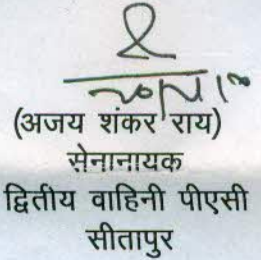 (अजय शंकर राय)
सेनानायक
द्वितीय वाहिनी पीएसी
सीतापुर